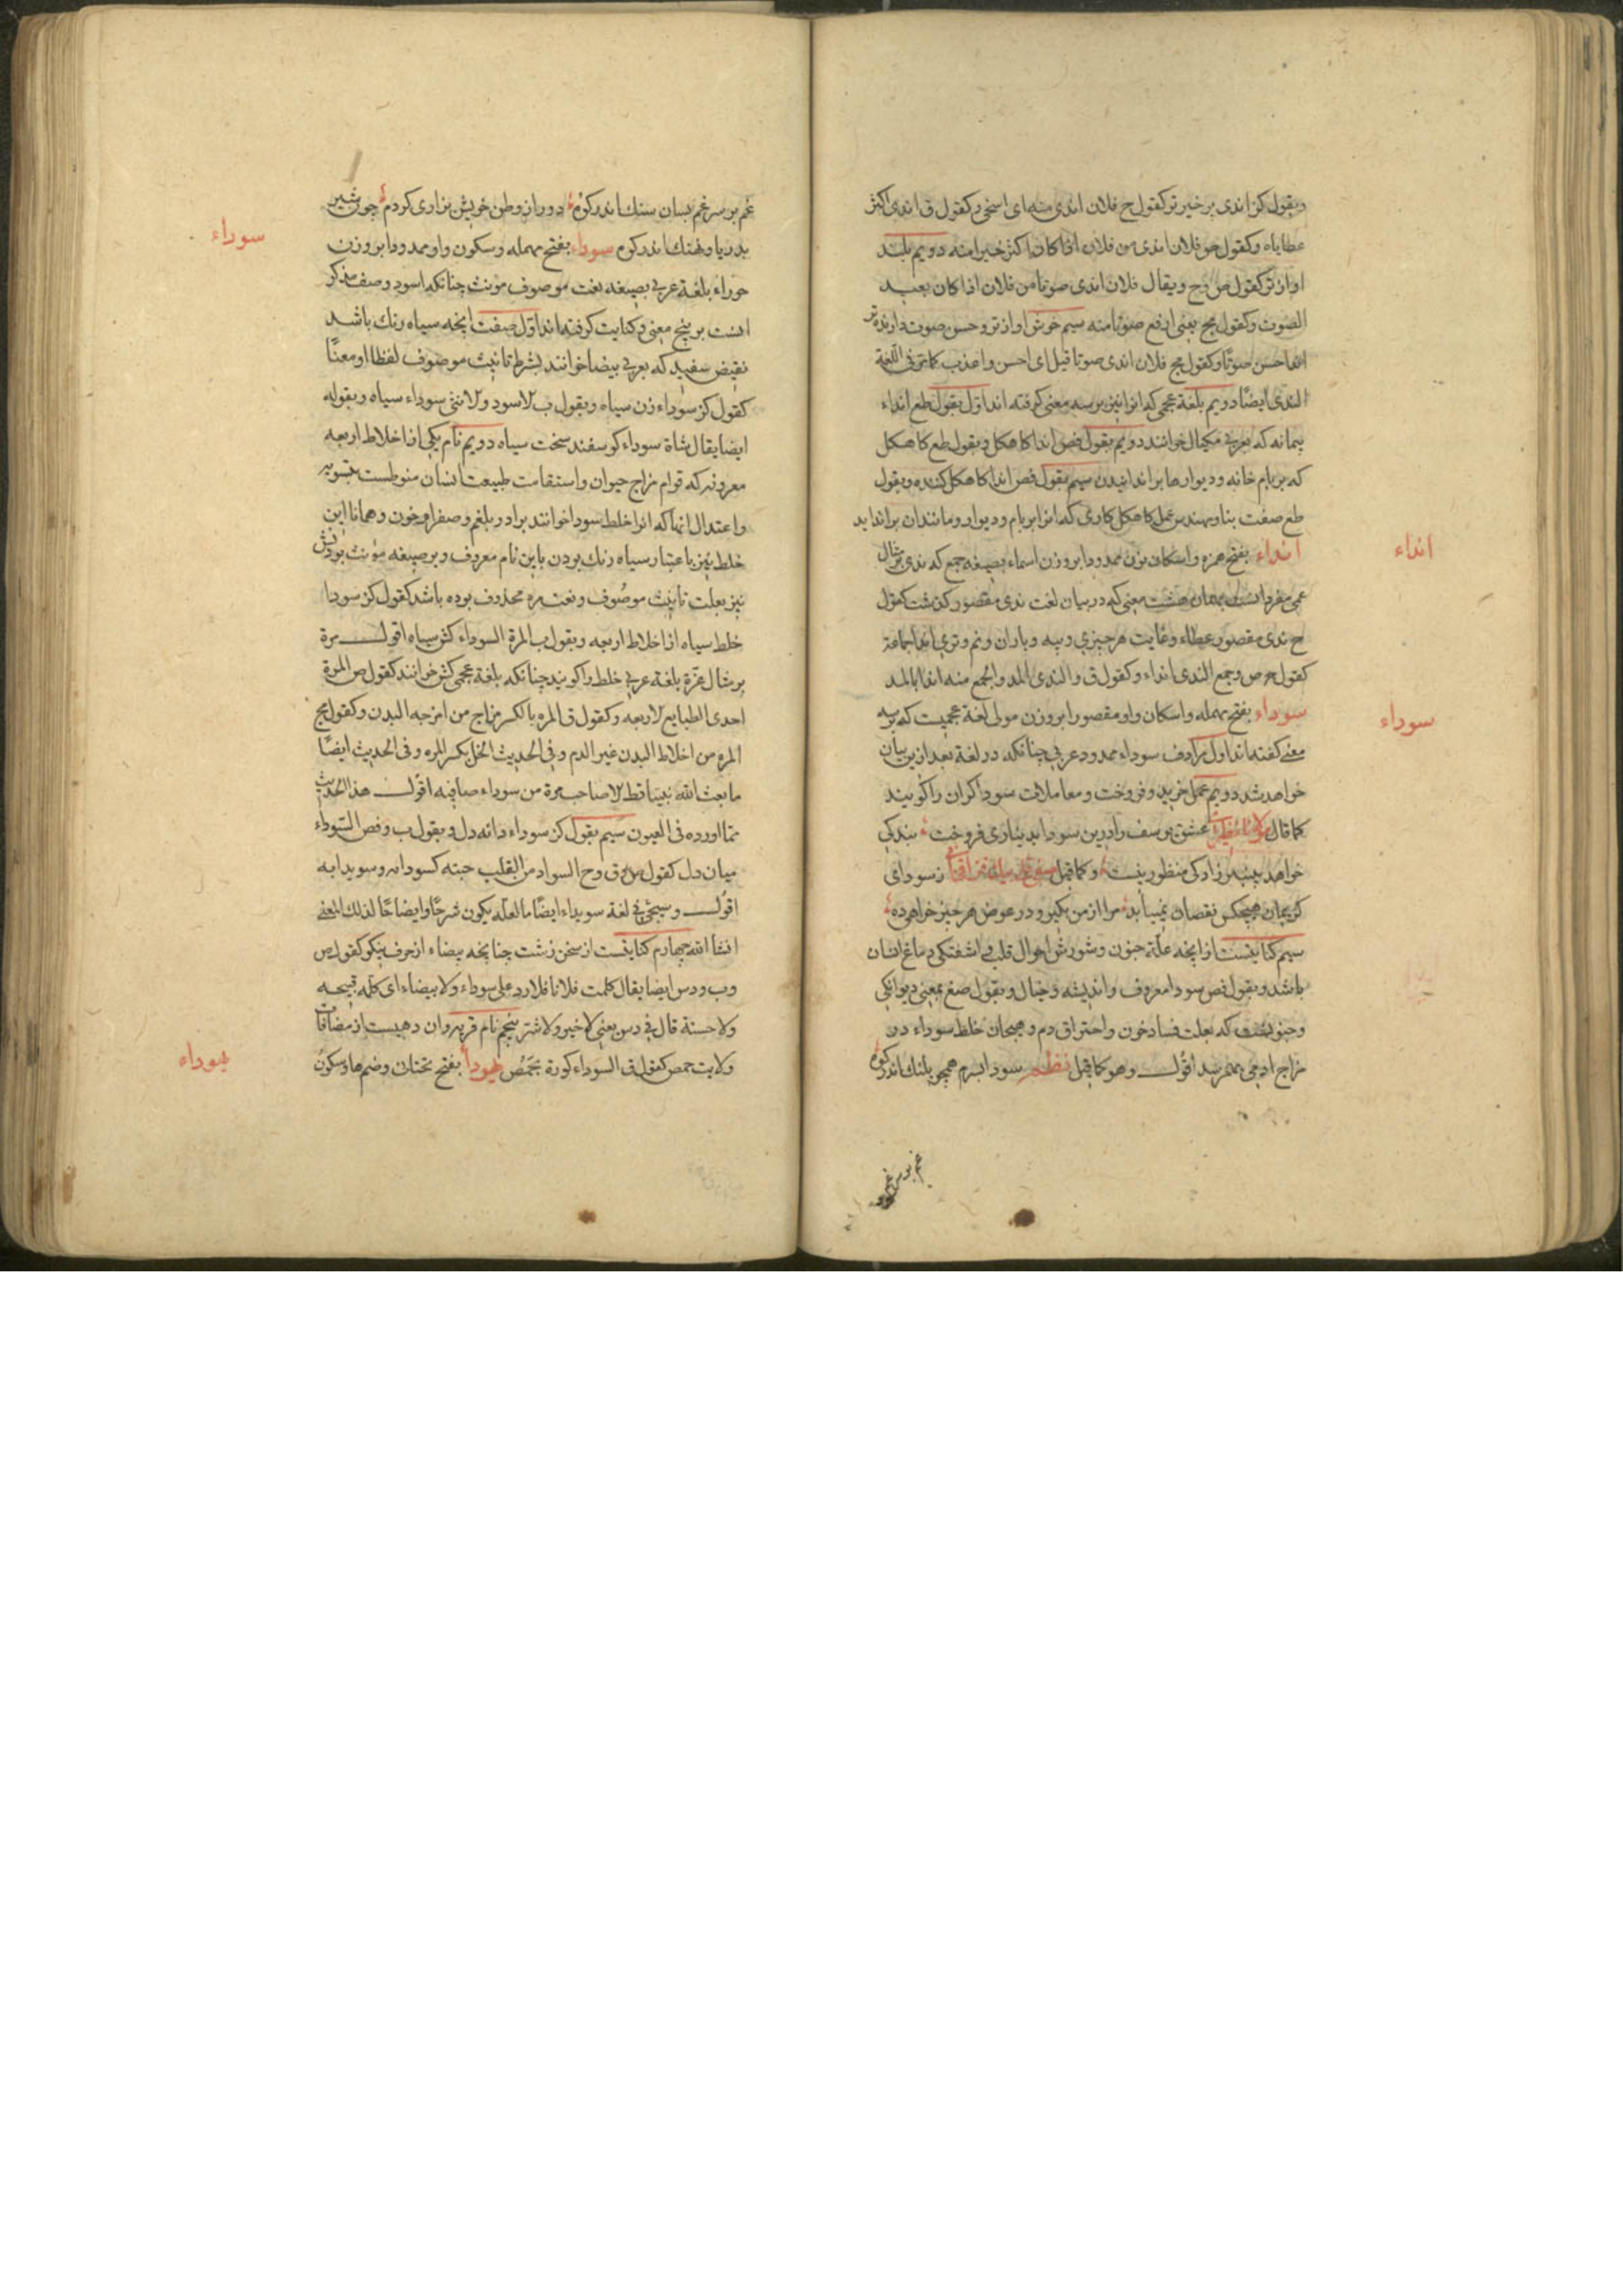 وبقول کز اندی برخیرتر کقول ح فلان اندی منه ای اسخی و کقول ق اندی اکثر
عطایاه وکقول حو فلان اندی من فلان اذا کان اکثر خیرا منه دویم بلند
اوازتر کقول ص وح ویقال فلان اندی صوتا من فلان اذا کان بعید
الصوت وکقول مج یعنی ارفع صوتا منه سیم خوش اوازتر وحسن صوت دارنده تر
احسن صوتا وکقول مج فلان اندی صوتا قیل ای احسن واعذب کما مر فی اللغة
الندی ایضا دویم بلغة عجمی که انرا نیز بر سه معنی کرفته اند اول بقول طع انداء
پیمانه که بعربی مکیال خوانند دویم بقول فص اندا کاهکل وبقول طع کاهکل
که بر بام خانه ودیوارها براندایندن سیم بقول فص اندا کاهکل کننده وبقول
طع صفت بنا ومهندس عمل کاهکل کاری که انرا بر بام ودیوار ومانند ان براندابد
انداء
انداء بفتح همزه واسکان نون ممدودا بر وزن اسماء بصیغه جمع که ندی بر مثال
عمی مفرد انست بهمان هشت معنی که در بیان لغت ندی مقصور کذشت کقول
ح ندی مقصور عطاء وغایت هر چیزی وپیه وباران ونم وتری انداء جماعة
کقول ص وجمع الندی انداء وکقول ق والندی المد والجمع منه اندا بالمد
سوداء
سوداء بفتح مهمله واسکان واو مقصورا بر وزن مولی لغة عجمیت که بر سه
معنی کفته اند اول مرادف سوداء ممدود عربی چنانکه در لغة بعد ازین بیان
خواهد شد دویم عمل خرید وفروخت ومعاملات سوداکران را کویند
کما قال مولانا نظیری عشق یوسف را درین سودا بدیناری فروخت بندکی
خواهد پیمبر زادکی منظور نیست وکما قیل ز سودای
کریمان هیچکس نقصان نمیابد مرا از من بکیر ودر عوض هر چیز خواهی ده
سیم کنایتست از انچه علة جنون وشورش احوال قلب واشفتکی دماغ انسان
باشد وبقول فص سودا معروف واندیشه وخیال وبقول صغ بمعنی دیوانکی
وجنونست که بعلت فساد خون واحتراق دم وهیجان خلط سوداء در
مزاج ادمی بهمرسد اقول وهو کما قیل نظم سودا بسرم همچو پلنک اندر کوه
غم بر سر غم
غم بر سر غم بسان سنک اندر کوه دور از وطن خویش بزاری کردم چون شیر
بدریا ونهنک اندر کوه سوداء بفتح مهمله وسکون واو ممدودا بر وزن
سوداء
حوراء بلغة عربی بصیغه نعت موصوف مونث چنانکه اسود وصف مذکر
انست بر پنج معنی وکنایت کرفته اند اول صفت انچه سیاه رنک باشد
نقیض سفید که بعربی بیضا خوانند بشرط تانیث موصوف لفظا او معنًا
کقول کز سوداء زن سیاه وبقول ب الاسود والانثی سوداء سیاه وبقوله
ایضا یقال شاة سوداء کوسفند سخت سیاه دویم نام یکی از اخلاط اربعه
معروفه که قوام مزاج حیوان واستقامت طبیعت انسان منوطست بتسویه
واعتدال انها که انرا خلط سودا خوانند برادر بلغم وصفرا وخون وهمانا این
خلط نیز باعتبار سیاه رنک بودن باین نام معروف وبر صیغه مونث بودنش
نیز بعلت تانیث موصوف ونعت مره محذوف بوده باشد کقول کز سودا
خلط سیاه از اخلاط اربعه وبقول ب المرة السوداء کش سیاه اقول مرة
بر مثال غرة بلغة عربی خلط را کویند چنانکه بلغة عجمی کش خوانند کقول ص المرة
احدی الطبایع الاربعه وکقول ق المره بالکسر مزاج من امزجه البدن وکقول مج
المره من اخلاط البدن غیر الدم وفی الحدیث الخل یکسر المره وفی الحدیث ایضًا
ما بعث الله نبیا قط الا صاحب مرة من سوداء صافیه اقول هذا الحدیث
مما اورده فی العیون سیم بقول کز سوداء دانه دل وبقول ب وفص السوداء
میان دل کقول ص وق وح السواد من القلب حبته کسودائه وسویدایه
اقول وسیجئ فی لغة سویداء ایضًا ما لعله یکون شرحًا وایضاحًا لذلک المعنی
انشا الله چهارم کنایتست از سخن زشت چنانچه بیضاء از حرف نیکو کقول ص
وب ودس ایضا یقال کلمت فلانا فلا رد علی سوداء ولا بیضاء ای کلمه قبیحه
ولا حسنة قال فی دس یعنی لا خیر ولا شر پنجم نام قریه وان دهیست از مضافات
ولایت حمص کقول ق السوداء کورة بحمص یهودا بفتح تحتان وضم ها وسکون
یهوداء